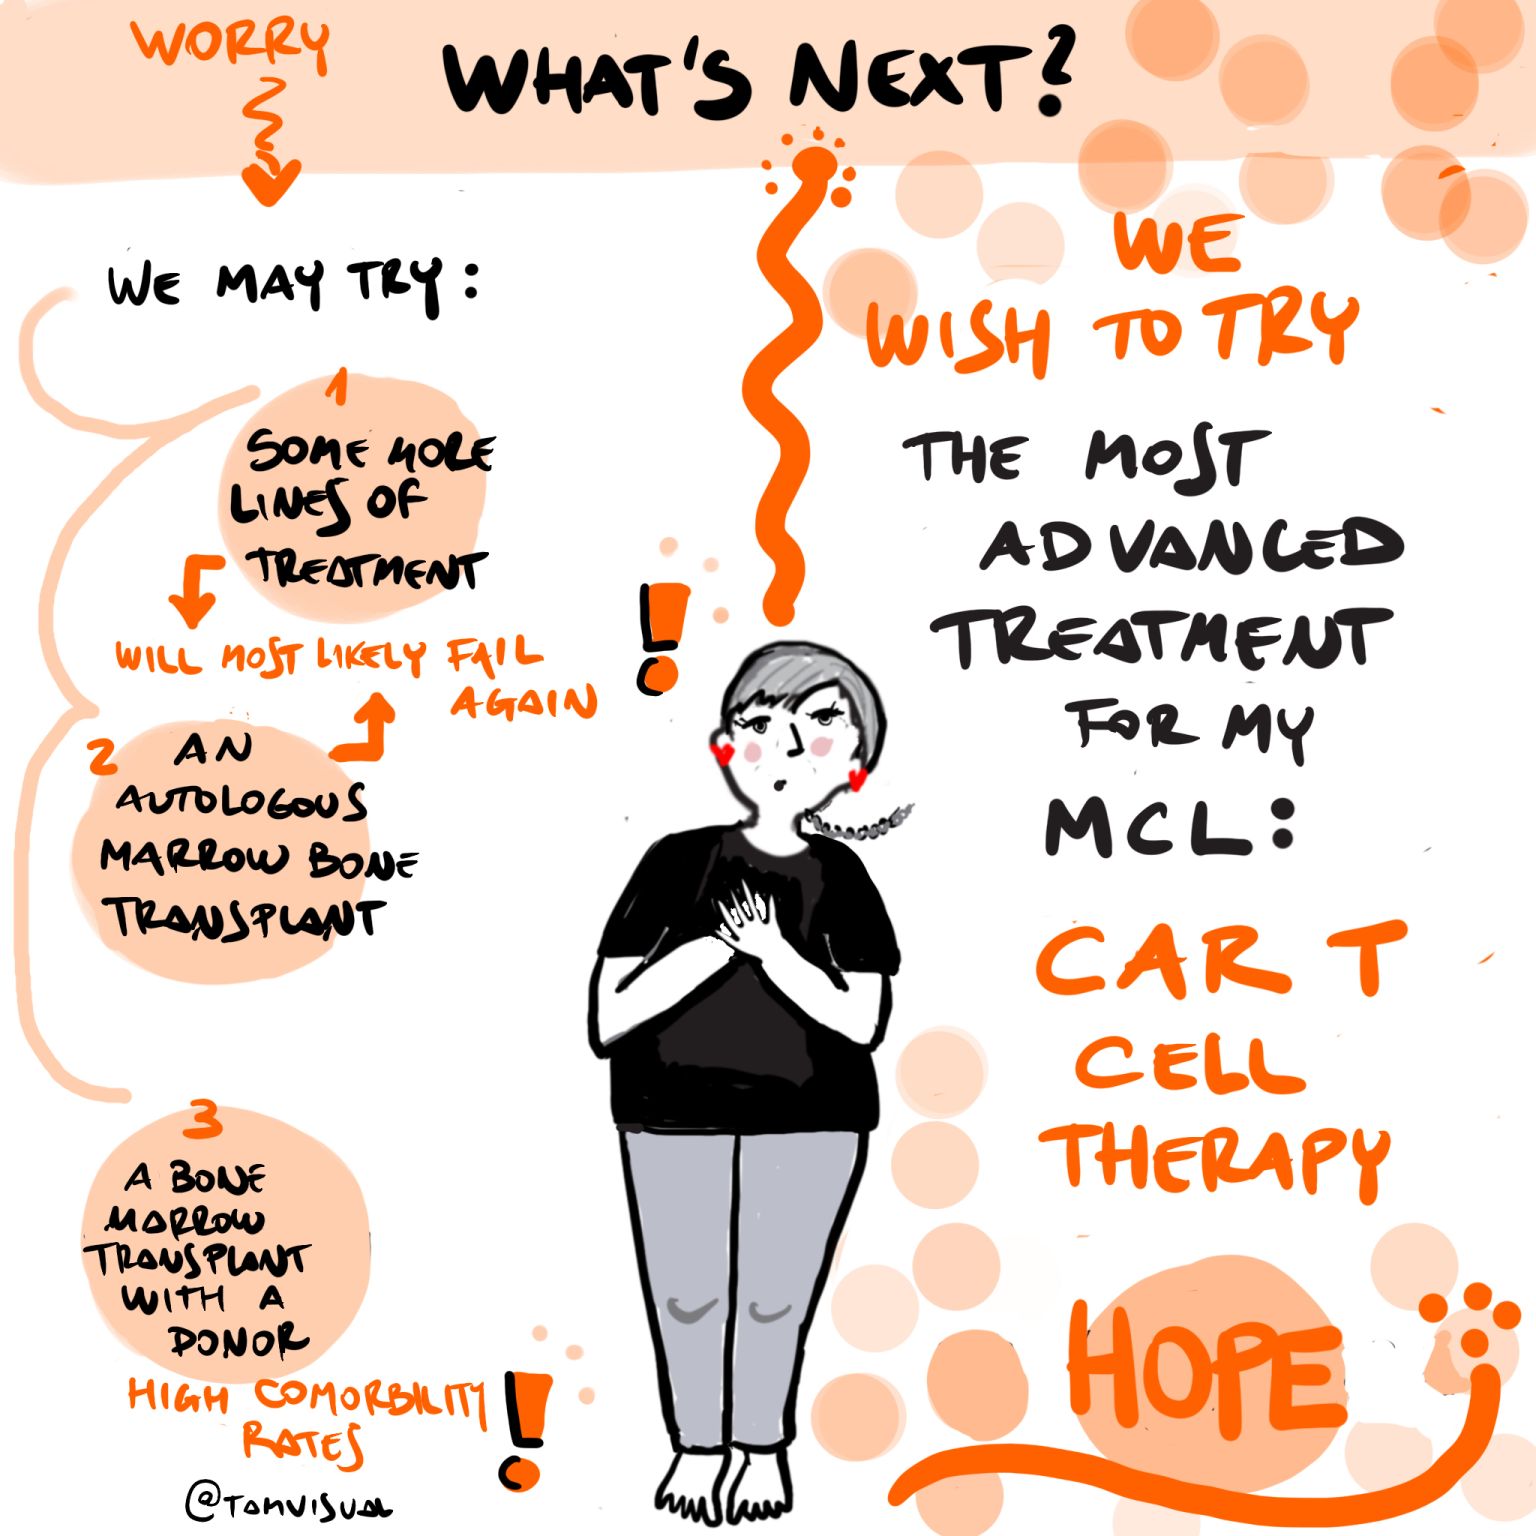 WORRY
WHAT'S NEXT?
WE MAY TRY:
1
SOME MORE
LINES OF
TREATMENT
WILL MOST LIKELY FAIL
AGAIN
2
AN
AUTOLOGOUS
MARROW BONE
TRANSPLANT
3
A BONE
MARROW
TRANSPLANT
WITH A
DONOR
HIGH COMORBILITY
RATES
@TAMVISUAL
!
!
WE
WISH TO TRY
THE MOST
ADVANCED
TREATMENT
FOR MY
MCL:
CAR T
CELL
THERAPY
HOPE